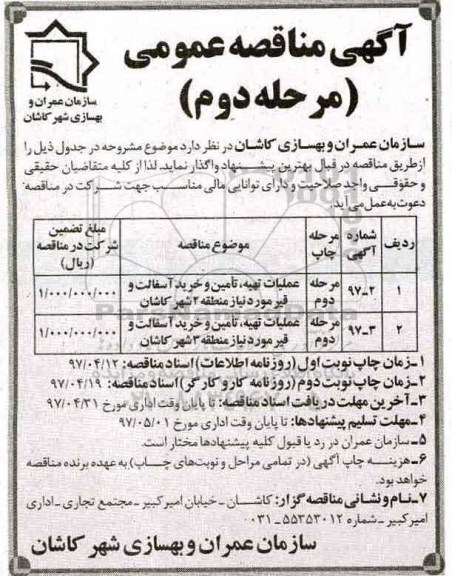 آگهی مناقصه عمومی
(مرحله دوم)
سازمان عمران و
بهسازی شهر کاشان
سازمان عمران و بهسازی کاشان در نظر دارد موضوع مشروحه در جدول ذیل را
از طریق مناقصه در قبال بهترین پیشنهاد واگذار نماید. لذا از کلیه متقاضیان حقیقی
و حقوقی واجد صلاحیت و دارای توانایی مالی مناسب جهت شرکت در مناقصه
دعوت به عمل می‌آید.
ردیف
شماره آگهی
مرحله چاپ
موضوع مناقصه
مبلغ تضمین شرکت در مناقصه (ریال)
۱
۹۷-۲
مرحله دوم
عملیات تهیه، تامین و خرید آسفالت و
قیر مورد نیاز منطقه ۲ شهر کاشان
۱/۰۰۰/۰۰۰/۰۰۰
۲
۹۷-۳
مرحله دوم
عملیات تهیه، تامین و خرید آسفالت و
قیر مورد نیاز منطقه ۳ شهر کاشان
۱/۰۰۰/۰۰۰/۰۰۰
۱-زمان چاپ نوبت اول (روزنامه اطلاعات) اسناد مناقصه: ۹۷/۰۴/۱۲
۲-زمان چاپ نوبت دوم (روزنامه کار و کارگر) اسناد مناقصه: ۹۷/۰۴/۱۹
۳-آخرین مهلت دریافت اسناد مناقصه: تا پایان وقت اداری مورخ ۹۷/۰۴/۳۱
۴-مهلت تسلیم پیشنهادها: تا پایان وقت اداری مورخ ۹۷/۰۵/۰۱
۵-سازمان عمران در رد یا قبول کلیه پیشنهادها مختار است.
۶-هزینه چاپ آگهی (در تمامی مراحل و نوبت‌های چاپ) به عهده برنده مناقصه
خواهد بود.
۷-نام و نشانی مناقصه گزار: کاشان - خیابان امیرکبیر - مجتمع تجاری - اداری
امیرکبیر - شماره ۵۵۳۵۳۰۱۲ - ۰۳۱
سازمان عمران و بهسازی شهر کاشان